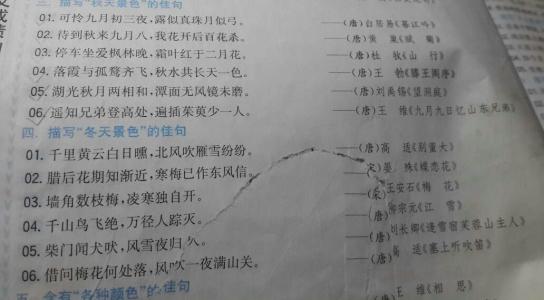 三、描写“秋天景色”的佳句
01. 可怜九月初三夜,露似真珠月似弓。 ——(唐)白居易《暮江吟》
02. 待到秋来九月八,我花开后百花杀。 ——(唐)黄 巢《赋 菊》
03. 停车坐爱枫林晚,霜叶红于二月花。 ——(唐)杜 牧《山 行》
04. 落霞与孤鹜齐飞,秋水共长天一色。 ——(唐)王 勃《滕王阁序》
05. 湖光秋月两相和,潭面无风镜未磨。 ——(唐)刘禹锡《望洞庭》
06. 遥知兄弟登高处,遍插茱萸少一人。 ——(唐)王 维《九月九日忆山东兄弟》
四、描写“冬天景色”的佳句
01. 千里黄云白日曛,北风吹雁雪纷纷。 ——(唐)高 适《别董大》
02. 腊后花期知渐近,寒梅已作东风信。 ——(宋)晏 殊《蝶恋花》
03. 墙角数枝梅,凌寒独自开。 ——(宋)王安石《梅 花》
04. 千山鸟飞绝,万径人踪灭。 ——(唐)柳宗元《江 雪》
05. 柴门闻犬吠,风雪夜归人。 ——(唐)刘长卿《逢雪宿芙蓉山主人》
06. 借问梅花何处落,风吹一夜满山关。 ——(唐)高 适《塞上听吹笛》
五、含有“各种颜色”的佳句
王 维《相 思》